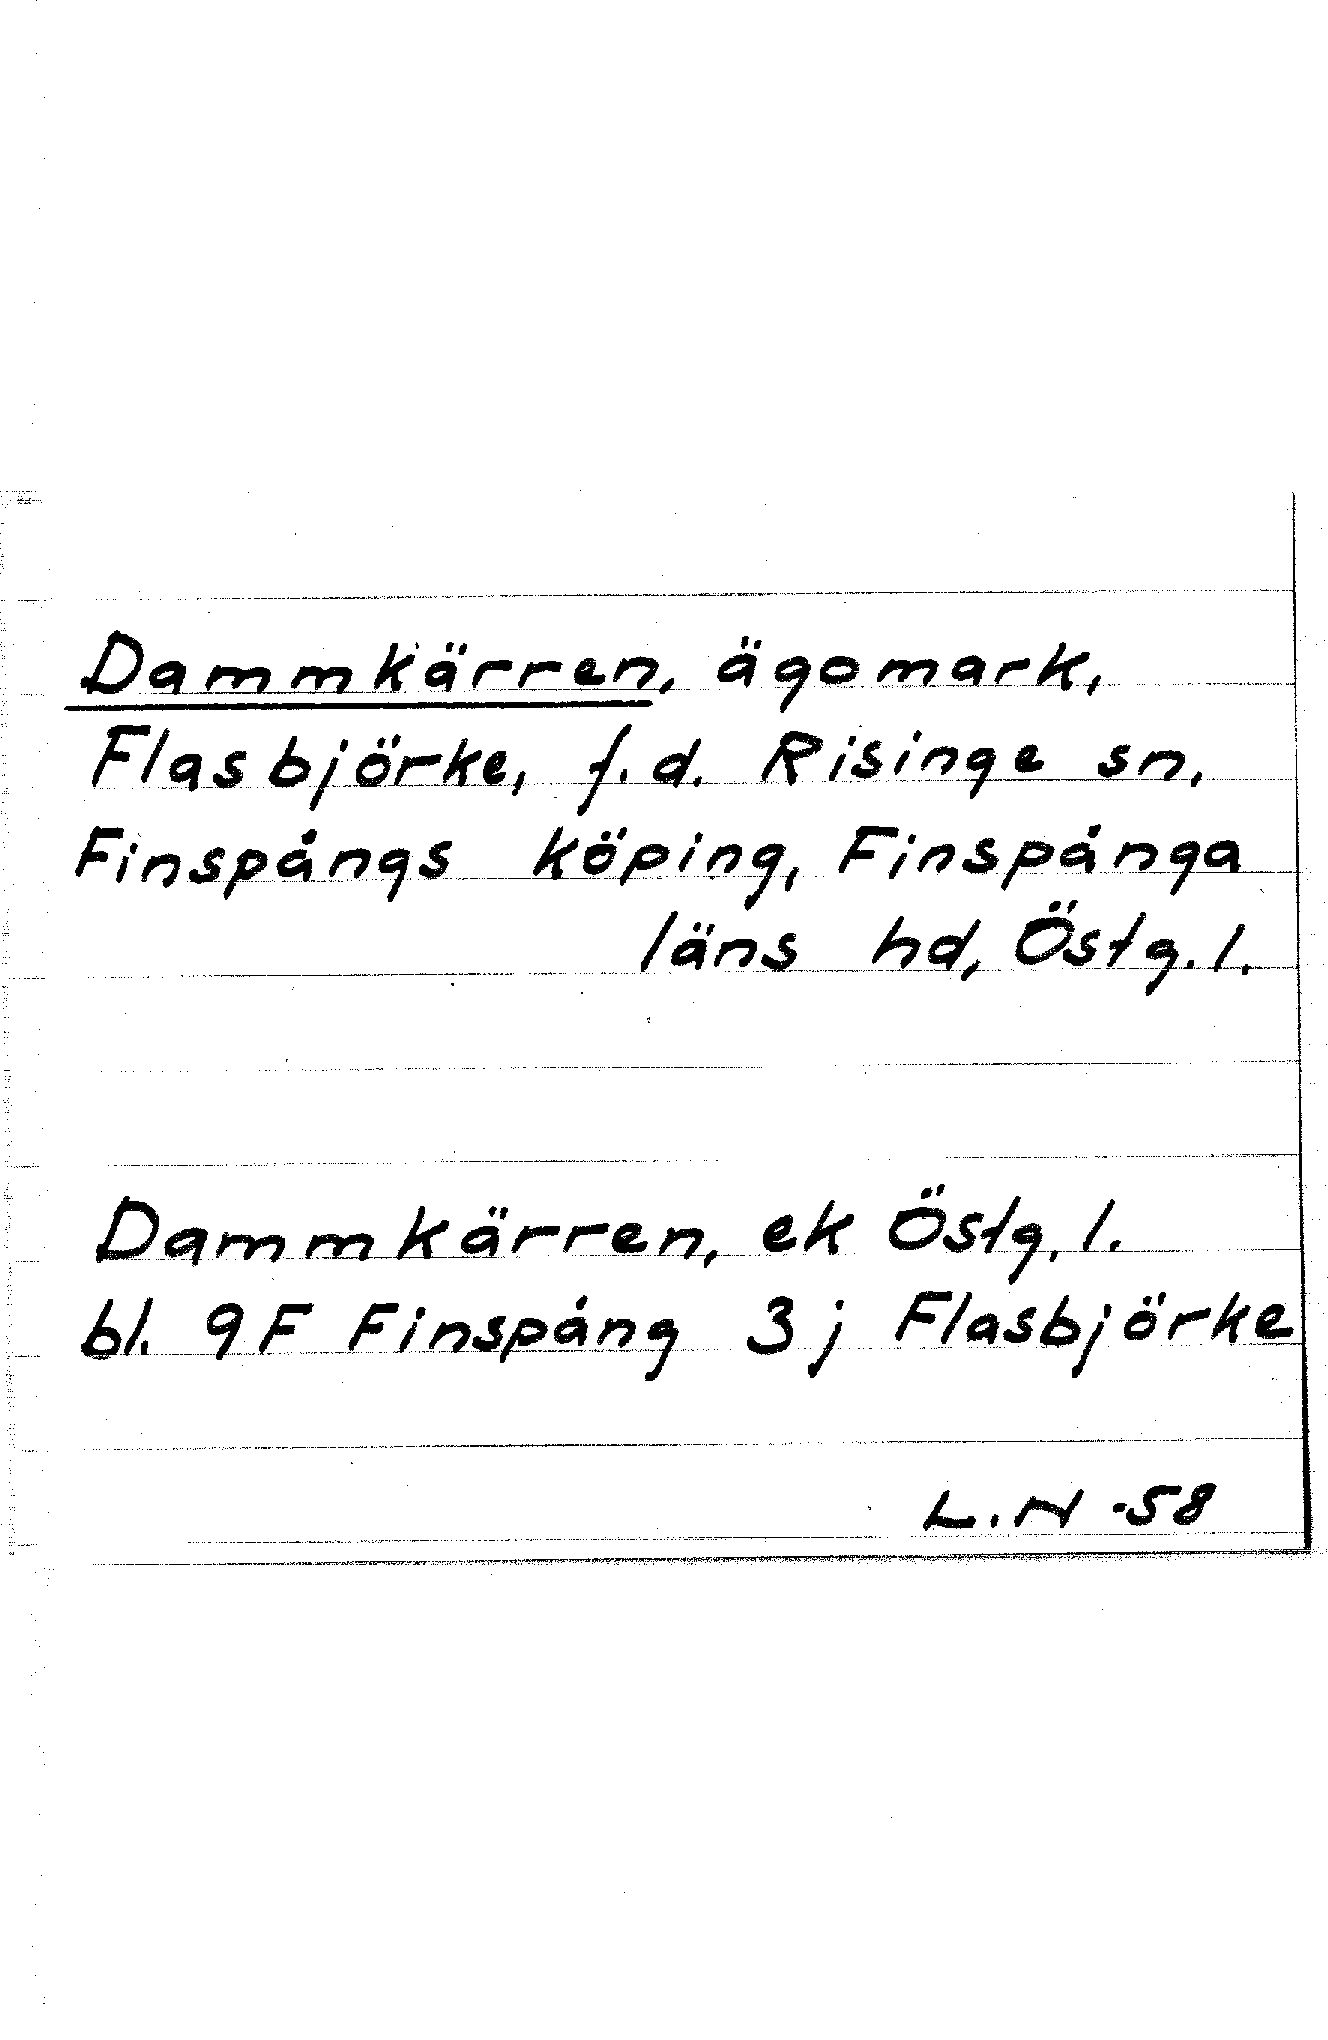 Dammkärren, ägomark,
Flasbjörke, f.d. Risinge sn,
Finspångs köping, Finspånga
läns hd, Östg. l.
Dammkärren, ek Östg. l.
bl. 9F Finspång 3j Flasbjörke
L.N -58